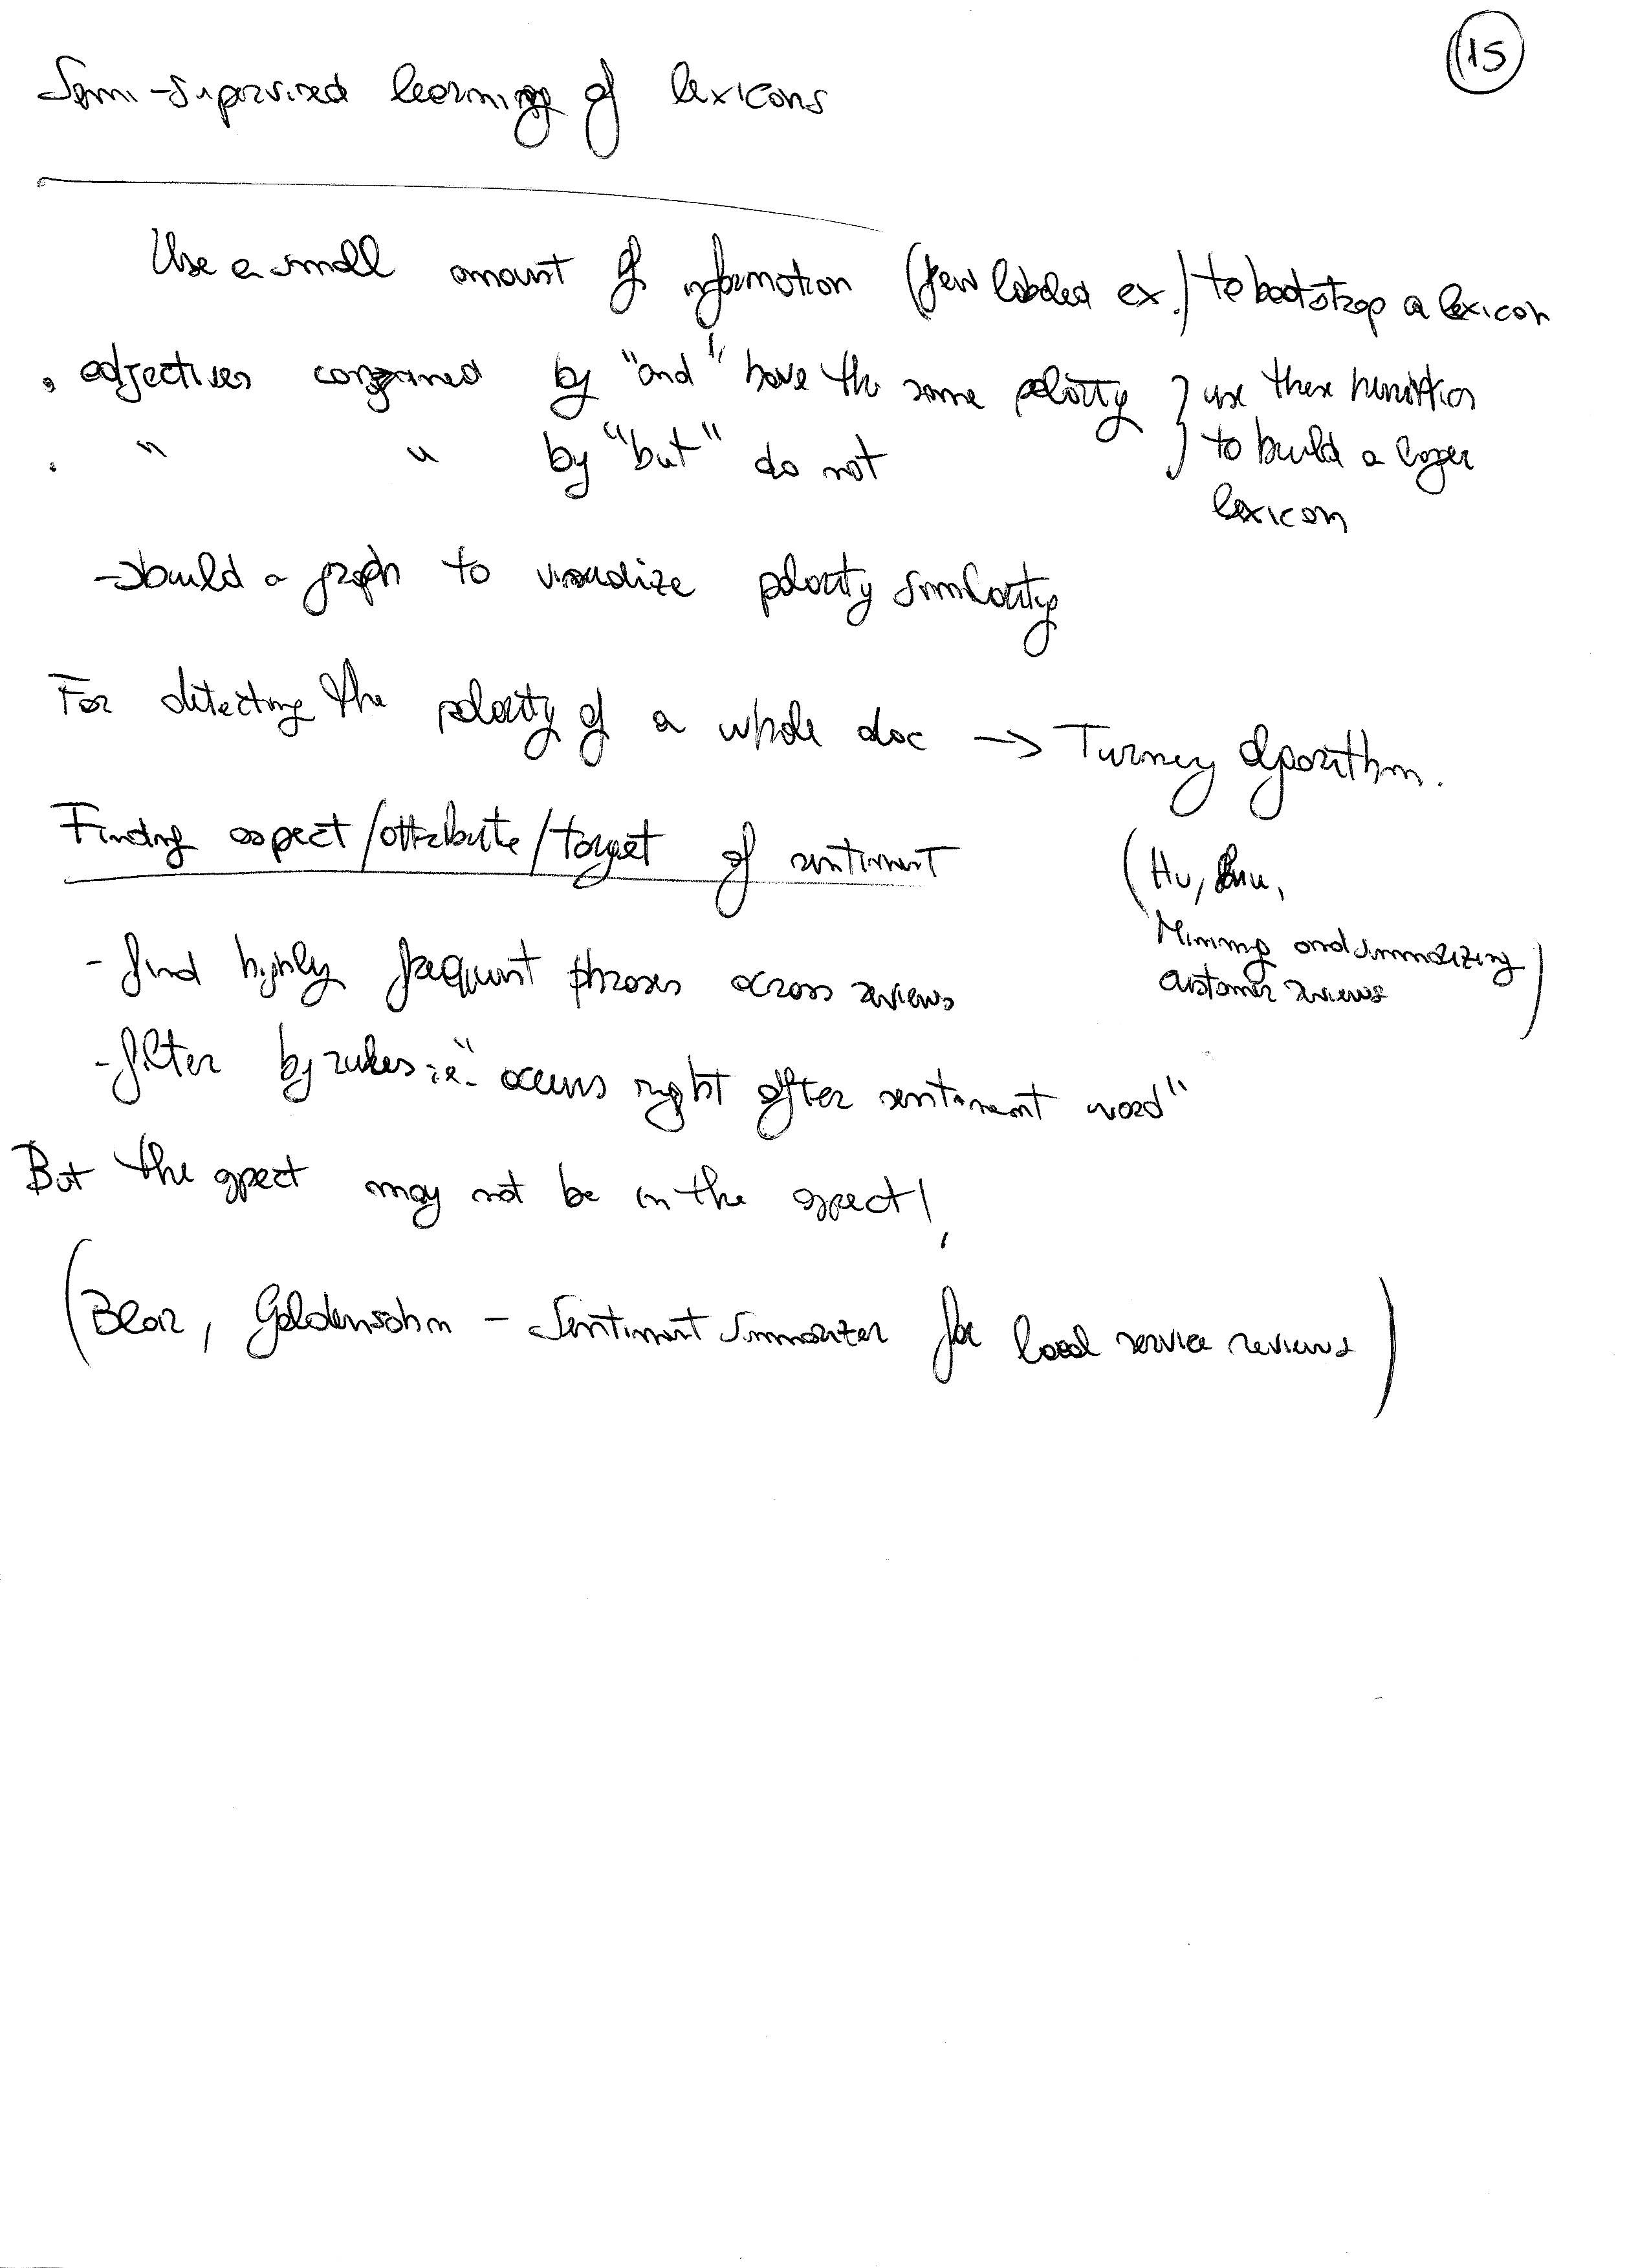 15
Semi-supervised learning of lexicons
Use a small amount of information (few labeled ex.) to bootstrap a lexicon
• adjectives conjoined by "and" have the same polarity } use these heuristics
• " " by "but" do not } to build a larger
lexicon
→ build a graph to visualize polarity similarity
For detecting the polarity of a whole doc → Turney algorithm.
Finding aspect/attribute/target of sentiment
(Hu, Liu,
Mining and summarizing
customer reviews)
- find highly frequent phrases across reviews
- filter by rules i.e. "occurs right after sentiment word"
But the aspect may not be in the aspect!
(Blair, Goldensohn - Sentiment Summarizer for local service reviews)